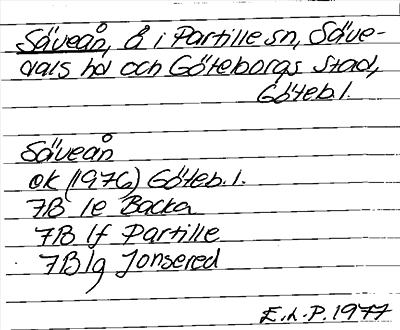 Säveån, å i Partille sn, Säve-
dals hd och Göteborgs stad,
Göteb. l.
Säveån
ek (1976) Göteb. l.
7B 1e Backa
7B 1f Partille
7B 1g Jonsered
E.L.P. 1977